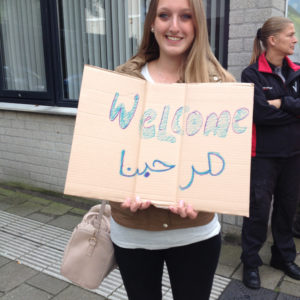 Welcome
مرحبنا